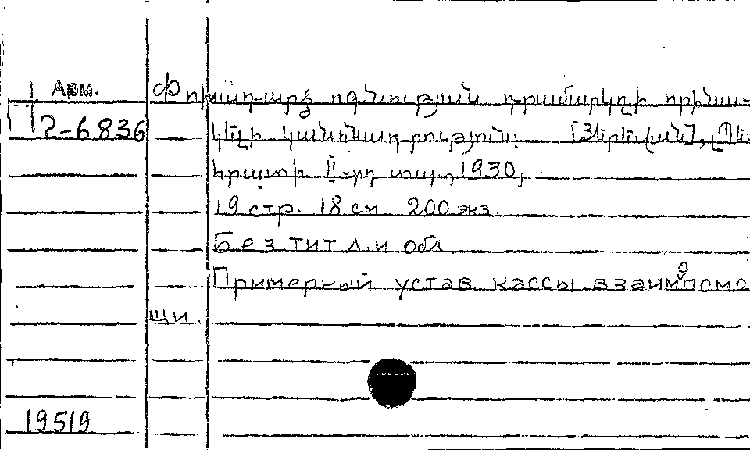 Арм. Փոխադարձ օգնության դրամարկղի օրինա-
2-6836 կելի կանոնադրություն: [Յերևան], Պե-
հրատի II-րդ տպ., 1930,
19 стр. 18 см 200 экз.
Без тит. л. и обл
Примерный устав кассы взаимопомо
щи.
19519